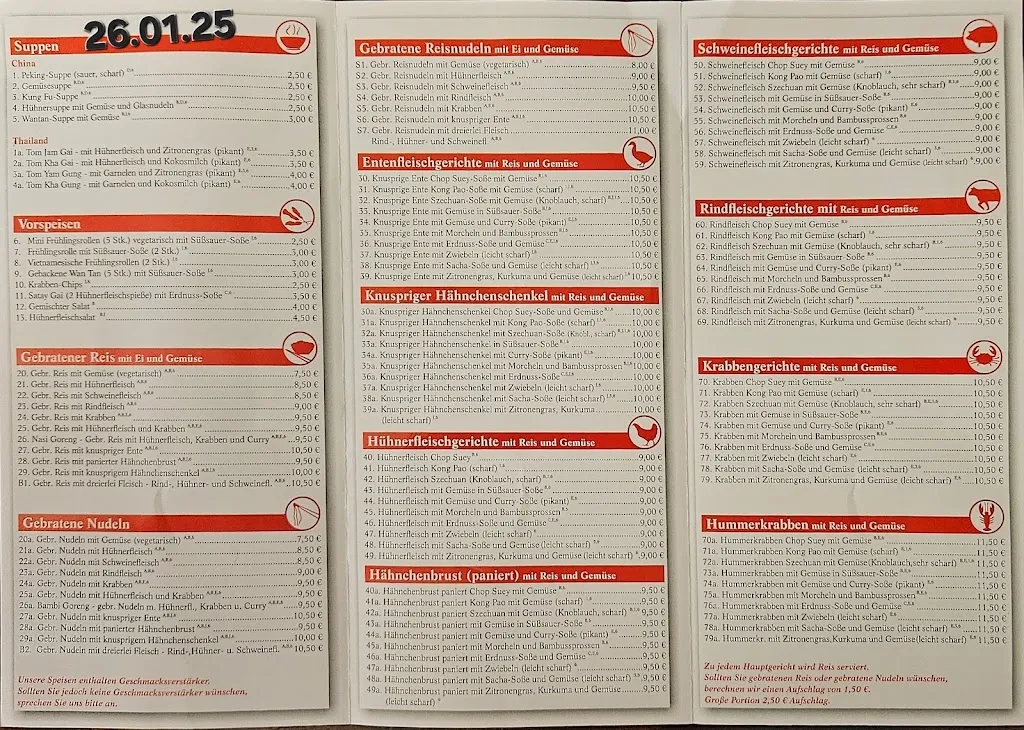 26.01.25
Suppen
China
1. Peking-Suppe (sauer, scharf) 2,50 €
2. Gemüsesuppe 2,50 €
3. Kung Fu-Suppe 2,50 €
4. Hühnersuppe mit Gemüse und Glasnudeln 2,50 €
5. Wantan-Suppe mit Gemüse 3,00 €
Thailand
1a. Tom Jam Gai - mit Hühnerfleisch und Zitronengras (pikant) 3,50 €
2a. Tom Kha Gai - mit Hühnerfleisch und Kokosmilch (pikant) 3,50 €
3a. Tom Yam Gung - mit Garnelen und Zitronengras (pikant) 4,00 €
4a. Tom Kha Gung - mit Garnelen und Kokosmilch (pikant) 4,00 €
Vorspeisen
6. Mini Frühlingsrollen (5 Stk.) vegetarisch mit Süßsauer-Soße 2,50 €
7. Frühlingsrolle mit Süßsauer-Soße (2 Stk.) 3,00 €
8. Vietnamesische Frühlingsrollen (2 Stk.) 3,00 €
9. Gebackene Wan Tan (5 Stk.) mit Süßsauer-Soße 3,00 €
10. Krabben-Chips 2,50 €
11. Satay Gai (2 Hühnerfleischspieße) mit Erdnuss-Soße 3,50 €
12. Gemischter Salat 4,00 €
13. Hühnerfleischsalat 4,50 €
Gebratener Reis mit Ei und Gemüse
20. Gebr. Reis mit Gemüse (vegetarisch) 7,50 €
21. Gebr. Reis mit Hühnerfleisch 8,50 €
22. Gebr. Reis mit Schweinefleisch 8,50 €
23. Gebr. Reis mit Rindfleisch 9,00 €
24. Gebr. Reis mit Krabben 9,50 €
25. Gebr. Reis mit Hühnerfleisch und Krabben 9,50 €
26. Nasi Goreng - Gebr. Reis mit Hühnerfleisch, Krabben und Curry 9,50 €
27. Gebr. Reis mit knuspriger Ente 10,50 €
28. Gebr. Reis mit panierter Hähnchenbrust 9,50 €
29. Gebr. Reis mit knusprigem Hähnchenschenkel 10,00 €
B1. Gebr. Reis mit dreierlei Fleisch - Rind-, Hühner- und Schweinefl. 10,50 €
Gebratene Nudeln
20a. Gebr. Nudeln mit Gemüse (vegetarisch) 7,50 €
21a. Gebr. Nudeln mit Hühnerfleisch 8,50 €
22a. Gebr. Nudeln mit Schweinefleisch 8,50 €
23a. Gebr. Nudeln mit Rindfleisch 9,00 €
24a. Gebr. Nudeln mit Krabben 9,50 €
25a. Gebr. Nudeln mit Hühnerfleisch und Krabben 9,50 €
26a. Bambi Goreng - gebr. Nudeln m. Hühnerfl., Krabben u. Curry 9,50 €
27a. Gebr. Nudeln mit knuspriger Ente 10,50 €
28a. Gebr. Nudeln mit panierter Hähnchenbrust 9,50 €
29a. Gebr. Nudeln mit knusprigem Hähnchenschenkel 10,00 €
B2. Gebr. Nudeln mit dreierlei Fleisch - Rind-,Hühner- u. Schweinefl. 10,50 €
Unsere Speisen enthalten Geschmacksverstärker.
Sollten Sie jedoch keine Geschmacksverstärker wünschen,
sprechen Sie uns bitte an.
Gebratene Reisnudeln mit Ei und Gemüse
S1. Gebr. Reisnudeln mit Gemüse (vegetarisch) 8,00 €
S2. Gebr. Reisnudeln mit Hühnerfleisch 9,00 €
S3. Gebr. Reisnudeln mit Schweinefleisch 9,50 €
S4. Gebr. Reisnudeln mit Rindfleisch 10,00 €
S5. Gebr. Reisnudeln mit Krabben 10,50 €
S6. Gebr. Reisnudeln mit knuspriger Ente 10,50 €
S7. Gebr. Reisnudeln mit dreierlei Fleisch 11,00 €
Rind-, Hühner- und Schweinefl.
Entenfleischgerichte mit Reis und Gemüse
30. Knusprige Ente Chop Suey-Soße mit Gemüse 10,50 €
31. Knusprige Ente Kong Pao-Soße mit Gemüse (scharf) 10,50 €
32. Knusprige Ente Szechuan-Soße mit Gemüse (Knoblauch, scharf) 10,50 €
33. Knusprige Ente mit Gemüse in Süßsauer-Soße 10,50 €
34. Knusprige Ente mit Gemüse und Curry-Soße (pikant) 10,50 €
35. Knusprige Ente mit Morcheln und Bambussprossen 10,50 €
36. Knusprige Ente mit Erdnuss-Soße 10,50 €
37. Knusprige Ente mit Zwiebeln (leicht scharf) 10,50 €
38. Knusprige Ente mit Sacha-Soße und Gemüse (leicht scharf) 10,50 €
39. Knusprige Ente mit Zitronengras, Kurkuma und Gemüse (leicht scharf) 10,50 €
Knuspriger Hähnchenschenkel mit Reis und Gemüse
30a. Knuspriger Hähnchenschenkel Chop Suey-Soße und Gemüse 10,00 €
31a. Knuspriger Hähnchenschenkel mit Kong Pao-Soße (scharf) 10,00 €
32a. Knuspriger Hähnchenschenkel mit Szechuan-Soße (Knobl., scharf) 10,00 €
33a. Knuspriger Hähnchenschenkel in Süßsauer-Soße 10,00 €
34a. Knuspriger Hähnchenschenkel mit Curry-Soße (pikant) 10,00 €
35a. Knuspriger Hähnchenschenkel mit Morcheln und Bambussprossen 10,00 €
36a. Knuspriger Hähnchenschenkel mit Erdnuss-Soße 10,00 €
37a. Knuspriger Hähnchenschenkel mit Zwiebeln (leicht scharf) 10,00 €
38a. Knuspriger Hähnchenschenkel mit Sacha-Soße (leicht scharf) 10,00 €
39a. Knuspriger Hähnchenschenkel mit Zitronengras, Kurkuma 10,00 €
(leicht scharf)
Hühnerfleischgerichte mit Reis und Gemüse
40. Hühnerfleisch Chop Suey 9,00 €
41. Hühnerfleisch Kong Pao (scharf) 9,00 €
42. Hühnerfleisch Szechuan (Knoblauch, scharf) 9,00 €
43. Hühnerfleisch mit Gemüse in Süßsauer-Soße 9,00 €
44. Hühnerfleisch mit Gemüse und Curry-Soße (pikant) 9,00 €
45. Hühnerfleisch mit Morcheln und Bambussprossen 9,00 €
46. Hühnerfleisch mit Erdnuss-Soße und Gemüse 9,00 €
47. Hühnerfleisch mit Zwiebeln (leicht scharf) 9,00 €
48. Hühnerfleisch mit Sacha-Soße und Gemüse (leicht scharf) 9,00 €
49. Hühnerfleisch mit Zitronengras, Kurkuma und Gemüse (leicht scharf) 9,00 €
Hähnchenbrust (paniert) mit Reis und Gemüse
40a. Hähnchenbrust paniert Chop Suey mit Gemüse 9,50 €
41a. Hähnchenbrust paniert Kong Pao mit Gemüse (scharf) 9,50 €
42a. Hähnchenbrust paniert Szechuan mit Gemüse (Knoblauch, scharf) 9,50 €
43a. Hähnchenbrust paniert mit Gemüse in Süßsauer-Soße 9,50 €
44a. Hähnchenbrust paniert mit Gemüse und Curry-Soße (pikant) 9,50 €
45a. Hähnchenbrust paniert mit Morcheln und Bambussprossen 9,50 €
46a. Hähnchenbrust paniert mit Erdnuss-Soße und Gemüse 9,50 €
47a. Hähnchenbrust paniert mit Zwiebeln (leicht scharf) 9,50 €
48a. Hähnchenbrust paniert mit Sacha-Soße und Gemüse (leicht scharf) 9,50 €
49a. Hähnchenbrust paniert mit Zitronengras, Kurkuma und Gemüse 9,50 €
(leicht scharf)
Schweinefleischgerichte mit Reis und Gemüse
50. Schweinefleisch Chop Suey mit Gemüse 9,00 €
51. Schweinefleisch Kong Pao mit Gemüse (scharf) 9,00 €
52. Schweinefleisch Szechuan mit Gemüse (Knoblauch, sehr scharf) 9,00 €
53. Schweinefleisch mit Gemüse in Süßsauer-Soße 9,00 €
54. Schweinefleisch mit Gemüse und Curry-Soße (pikant) 9,00 €
55. Schweinefleisch mit Morcheln und Bambussprossen 9,00 €
56. Schweinefleisch mit Erdnuss-Soße und Gemüse 9,00 €
57. Schweinefleisch mit Zwiebeln (leicht scharf) 9,00 €
58. Schweinefleisch mit Sacha-Soße und Gemüse (leicht scharf) 9,00 €
59. Schweinefleisch mit Zitronengras, Kurkuma und Gemüse (leicht scharf) 9,00 €
Rindfleischgerichte mit Reis und Gemüse
60. Rindfleisch Chop Suey mit Gemüse 9,50 €
61. Rindfleisch Kong Pao mit Gemüse (scharf) 9,50 €
62. Rindfleisch Szechuan mit Gemüse (Knoblauch, sehr scharf) 9,50 €
63. Rindfleisch mit Gemüse in Süßsauer-Soße 9,50 €
64. Rindfleisch mit Gemüse und Curry-Soße (pikant) 9,50 €
65. Rindfleisch mit Morcheln und Bambussprossen 9,50 €
66. Rindfleisch mit Erdnuss-Soße und Gemüse 9,50 €
67. Rindfleisch mit Zwiebeln (leicht scharf) 9,50 €
68. Rindfleisch mit Sacha-Soße und Gemüse (leicht scharf) 9,50 €
69. Rindfleisch mit Zitronengras, Kurkuma und Gemüse (leicht scharf) 9,50 €
Krabbengerichte mit Reis und Gemüse
70. Krabben Chop Suey mit Gemüse 10,50 €
71. Krabben Kong Pao mit Gemüse (scharf) 10,50 €
72. Krabben Szechuan mit Gemüse (Knoblauch, sehr scharf) 10,50 €
73. Krabben mit Gemüse in Süßsauer-Soße 10,50 €
74. Krabben mit Gemüse und Curry-Soße (pikant) 10,50 €
75. Krabben mit Morcheln und Bambussprossen 10,50 €
76. Krabben mit Erdnuss-Soße und Gemüse 10,50 €
77. Krabben mit Zwiebeln (leicht scharf) 10,50 €
78. Krabben mit Sacha-Soße und Gemüse (leicht scharf) 10,50 €
79. Krabben mit Zitronengras, Kurkuma und Gemüse (leicht scharf) 10,50 €
Hummerkrabben mit Reis und Gemüse
70a. Hummerkrabben Chop Suey mit Gemüse 11,50 €
71a. Hummerkrabben Kong Pao mit Gemüse (scharf) 11,50 €
72a. Hummerkrabben Szechuan mit Gemüse(Knoblauch,sehr scharf) 11,50 €
73a. Hummerkrabben mit Gemüse in Süßsauer-Soße 11,50 €
74a. Hummerkrabben mit Gemüse und Curry-Soße (pikant) 11,50 €
75a. Hummerkrabben mit Morcheln und Bambussprossen 11,50 €
76a. Hummerkrabben mit Erdnuss-Soße und Gemüse 11,50 €
77a. Hummerkrabben mit Zwiebeln (leicht scharf) 11,50 €
78a. Hummerkrabben mit Sacha-Soße und Gemüse (leicht scharf) 11,50 €
79a. Hummerkr. mit Zitronengras,Kurkuma und Gemüse(leicht scharf) 11,50 €
Zu jedem Hauptgericht wird Reis serviert.
Sollten Sie gebratenen Reis oder gebratene Nudeln wünschen,
berechnen wir einen Aufschlag von 1,50 €.
Große Portion 2,50 € Aufschlag.